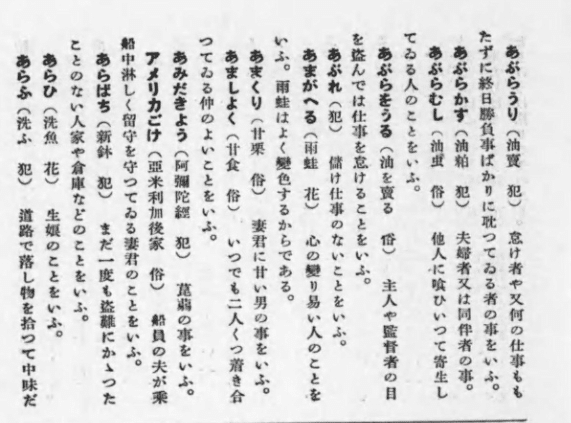 あぶらうり（油賣　犯）　怠け者や又何の仕事もも
たずに終日勝負事ばかりに耽つてゐる者の事をいふ。
あぶらかす（油粕　犯）　夫婦者又は同伴者の事。
あぶらむし（油虫　俗）　他人に喰ひいつて寄生し
てゐる人のことをいふ。
あぶらをうる（油を賣る　俗）　主人や監督者の目
を盜んでは仕事を怠けることをいふ。
あぶれ（犯）　儲け仕事のないことをいふ。
あまがへる（雨蛙　花）　心の變り易い人のことを
いふ。雨蛙はよく變色するからである。
あまくり（甘栗　俗）　妻君に甘い男の事をいふ。
あましよく（甘食　俗）　いつでも二人くつ着き合
つてゐる仲のよいことをいふ。
あみだきよう（阿彌陀經　犯）　蒟蒻の事をいふ。
アメリカごけ（亞米利加後家　俗）　船員の夫が乘
船中淋しく留守を守つてゐる妻君のことをいふ。
あらばち（新鉢　犯）　まだ一度も盜難にかゝつた
ことのない人家や倉庫などのことをいふ。
あらひ（洗魚　花）　生娘のことをいふ。
あらふ（洗ふ　犯）　道路で落し物を拾つて中味だ